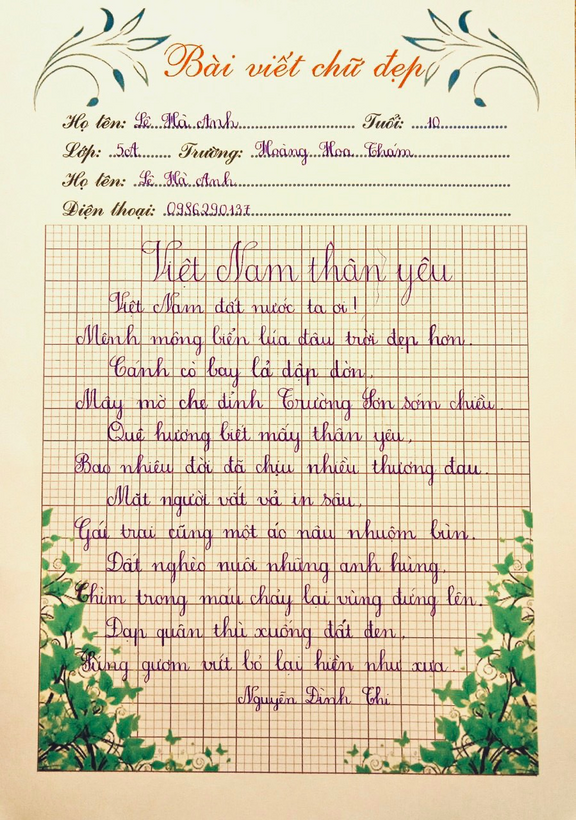 Bài viết chữ đẹp
Họ tên: Lê Hà Anh Tuổi: 10
Lớp: 5A Trường: Hoàng Hoa Thám
Họ tên: Lê Hà Anh
Điện thoại: 0986290137
Việt Nam thân yêu
Việt Nam đất nước ta ơi!
Mênh mông biển lúa đâu trời đẹp hơn.
Cánh cò bay lả dập dờn,
Mây mờ che đỉnh Trường Sơn sớm chiều.
Quê hương biết mấy thân yêu,
Bao nhiêu đời đã chịu nhiều thương đau.
Mặt người vất vả in sâu,
Gái trai cũng một áo nâu nhuộm bùn.
Đất nghèo nuôi những anh hùng,
Chìm trong máu chảy lại vùng đứng lên.
Đạp quân thù xuống đất đen,
Súng gươm vứt bỏ lại hiền như xưa.
Nguyễn Đình Thi